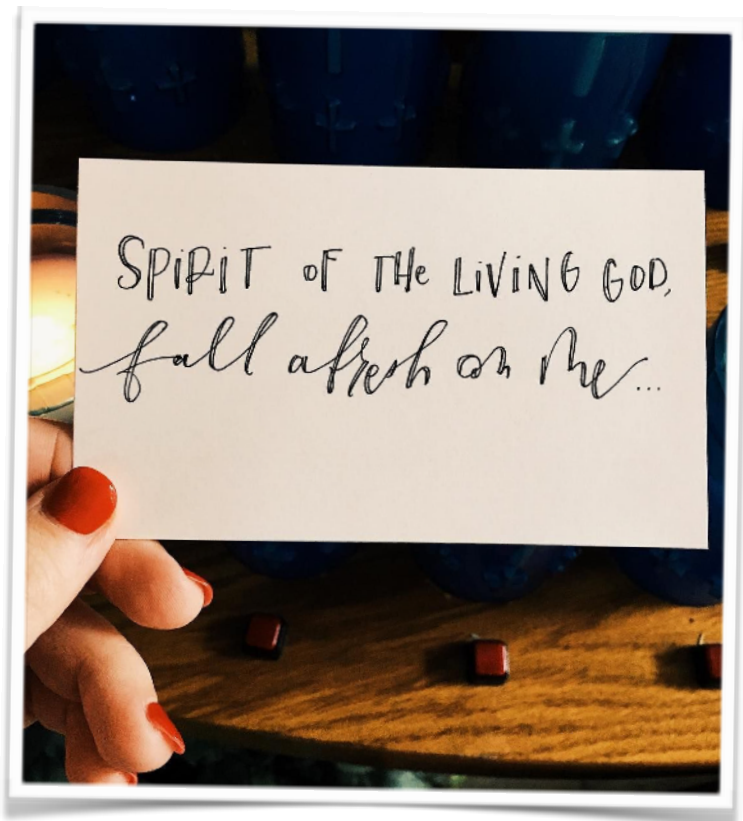 SPiRiT OF THe LiViNG GOD,
fall afresh on me...